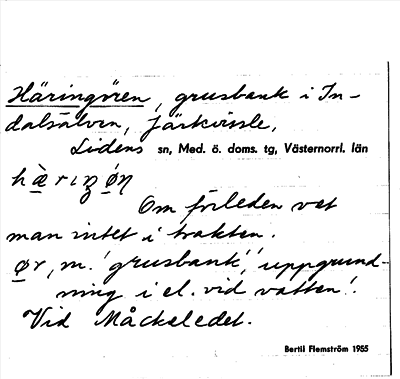 Häringören, grusbank i In-
dalsälven, Järkvissle,
Lidens sn, Med. ö. doms. tg, Västernorrl. län
hæ̀riŋø̀ṇ
Om förleden vet
man intet i trakten.
ør, m. 'grusbank', 'uppgrund-
ning i el. vid vatten'.
Vid Måckeledet.
Bertil Flemström 1955